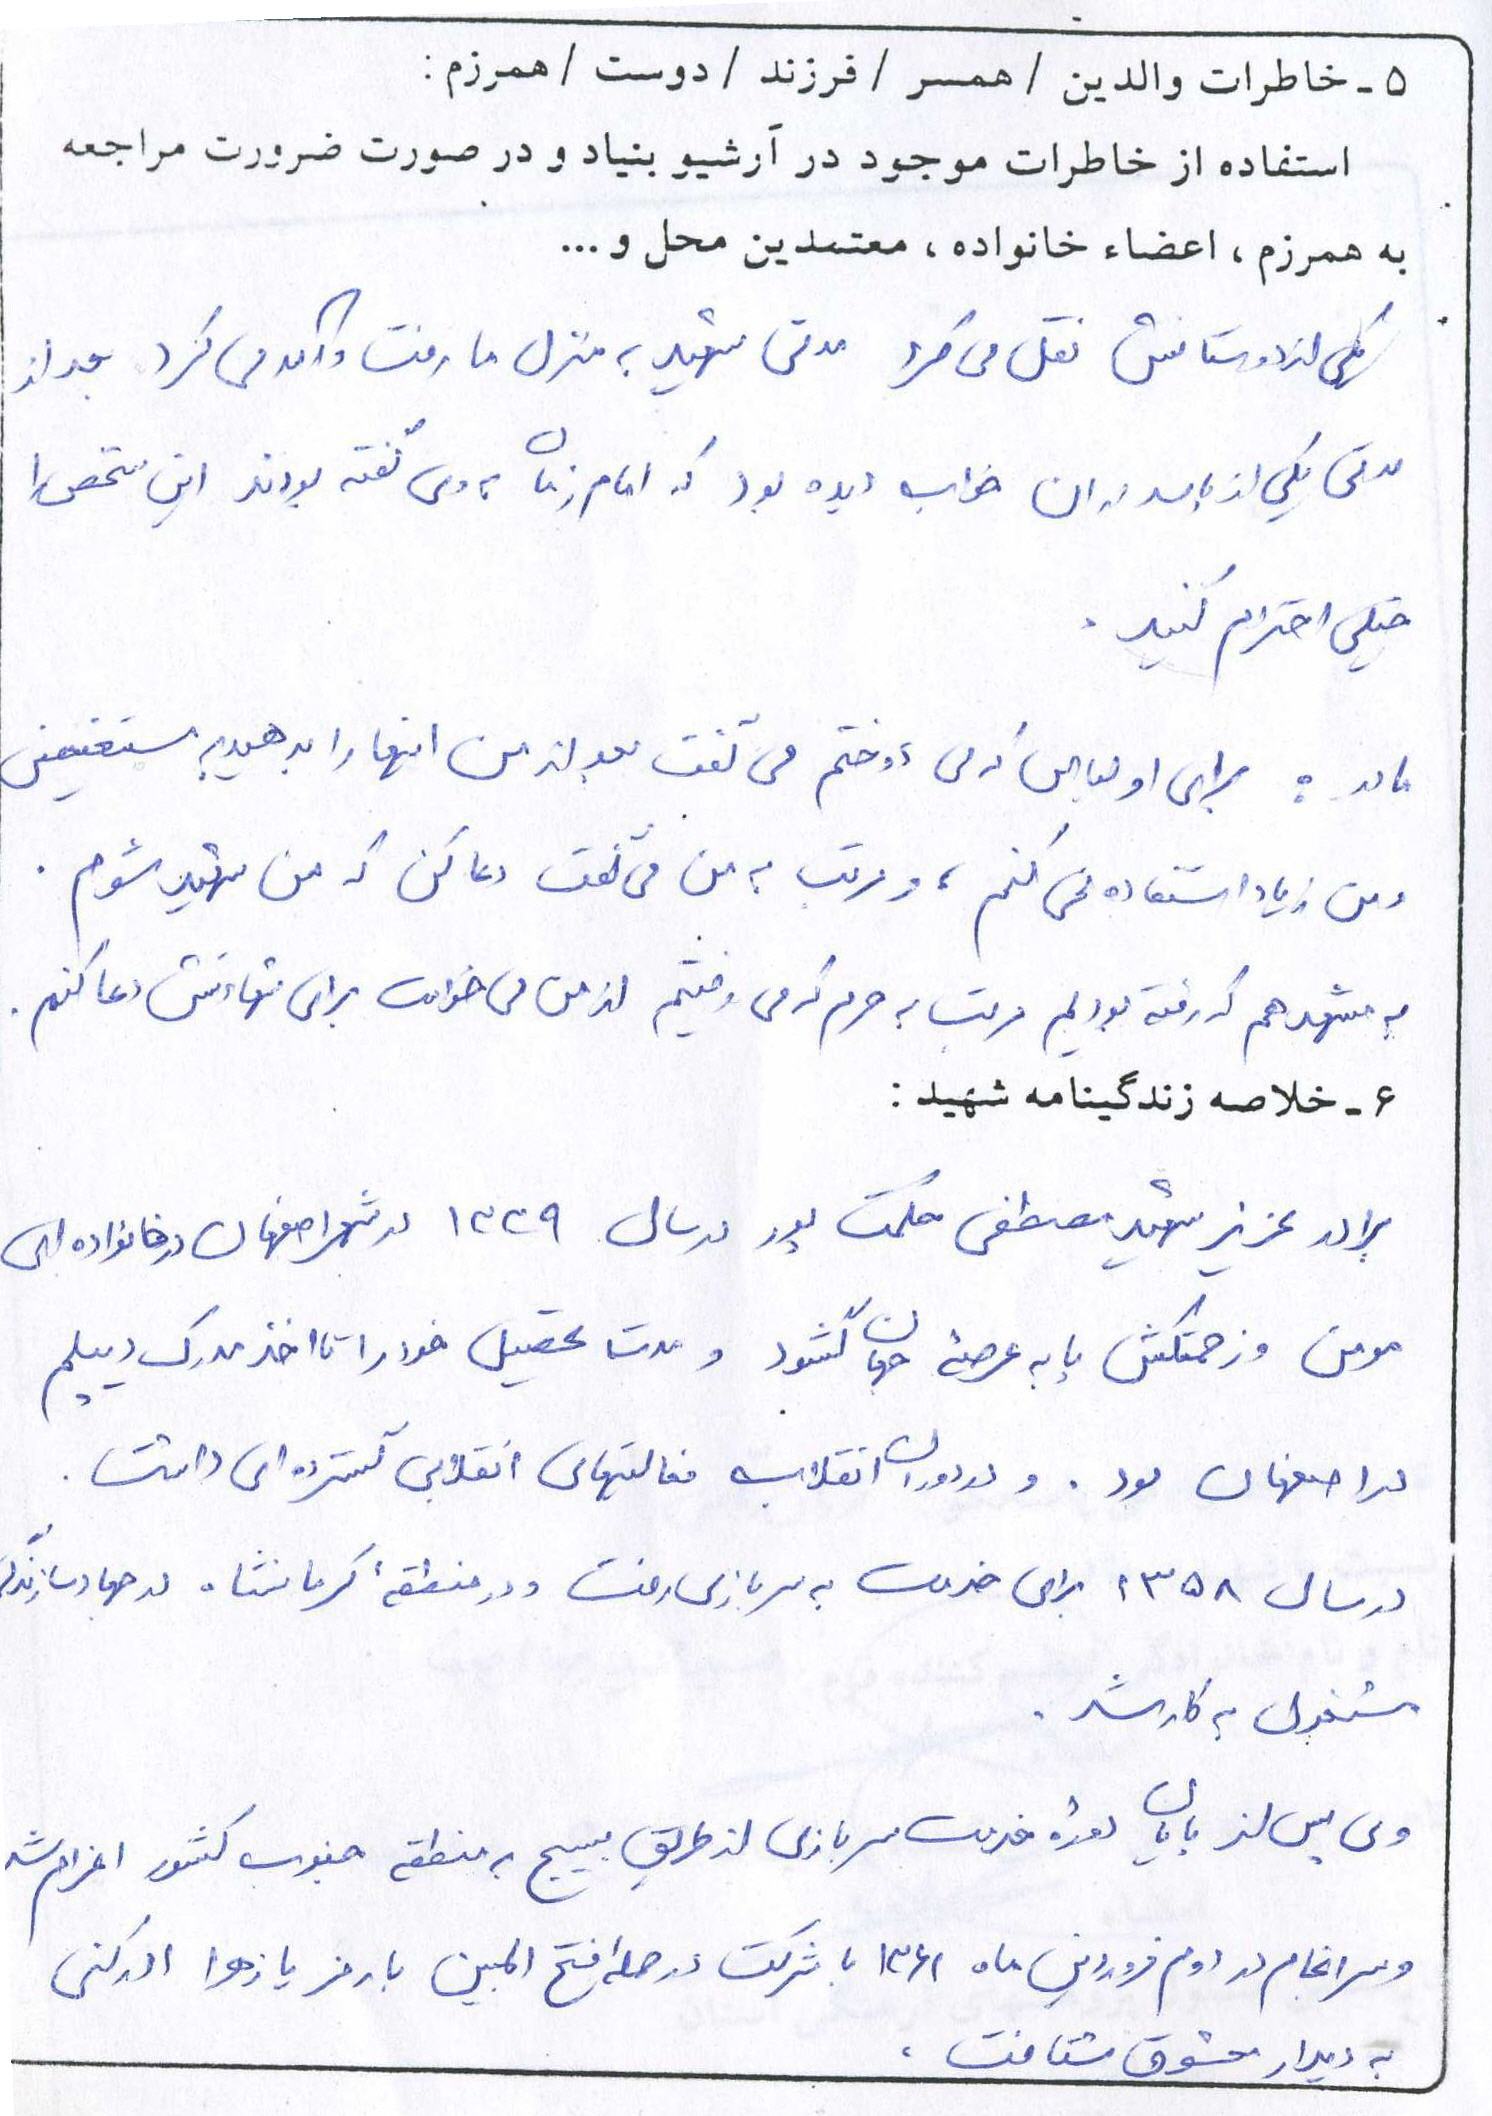 ۵ - خاطرات والدین / همسر / فرزند / دوست / همرزم :
استفاده از خاطرات موجود در آرشیو بنیاد و در صورت ضرورت مراجعه
به همرزم ، اعضاء خانواده ، معتمدین محل و ...
یکی از دوستانش نقل می کرد مدتی شهید به منزل ما رفت و آمد می کرد بعد از
مدتی یکی از پاسداران خواب دیده بود که امام زمان به وی گفته بودند این شخص را
خیلی احترام کنید .
مادر : برای او لباس که می دوختم می گفت بعد از من اینها را بدهید به مستضعفین
و من زیاد استفاده نمی کنم ، و مرتب به من می گفت دعا کن که من شهید شوم .
به مشهد هم که رفته بودیم مرتب به حرم که می رفتیم از من می خواست برای شهادتش دعا کنم .
۶ - خلاصه زندگینامه شهید :
برادر عزیز شهید مصطفی حکمت پور در سال ۱۳۳۹ در شهر اصفهان در خانواده ای
مومن و زحمتکش پا به عرصهٔ جهان گشود و مدت تحصیل خود را تا اخذ مدرک دیپلم
در اصفهان بود . و در دوران انقلاب فعالیتهای انقلابی گسترده ای داشت .
در سال ۱۳۵۸ برای خدمت به سربازی رفت و در منطقهٔ کرمانشاه در جهاد سازندگی
مشغول به کار شد .
وی پس از پایان دورهٔ خدمت سربازی از طریق بسیج به منطقه جنوب کشور اعزام شد
و سرانجام در دوم فروردین ماه ۱۳۶۱ با شرکت در حمله فتح المبین با رمز یا زهرا ادرکنی
به دیدار معشوق شتافت .